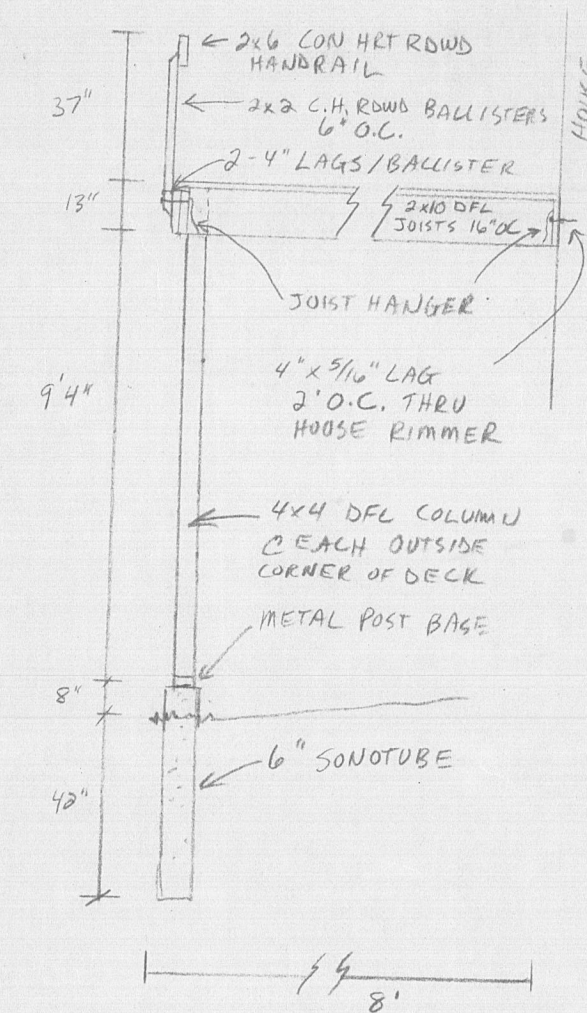 2x6 CON HRT RDWD
HANDRAIL
37"
2x2 C.H. RDWD BALLISTERS
6" O.C.
HOUSE
2-4" LAGS/BALLISTER
13"
2x10 DFL
JOISTS 16"OC
JOIST HANGER
4" x 5/16" LAG
2' O.C. THRU
HOUSE RIMMER
9'4"
4x4 DFL COLUMN
@ EACH OUTSIDE
CORNER OF DECK
METAL POST BASE
8"
6" SONOTUBE
42"
8'